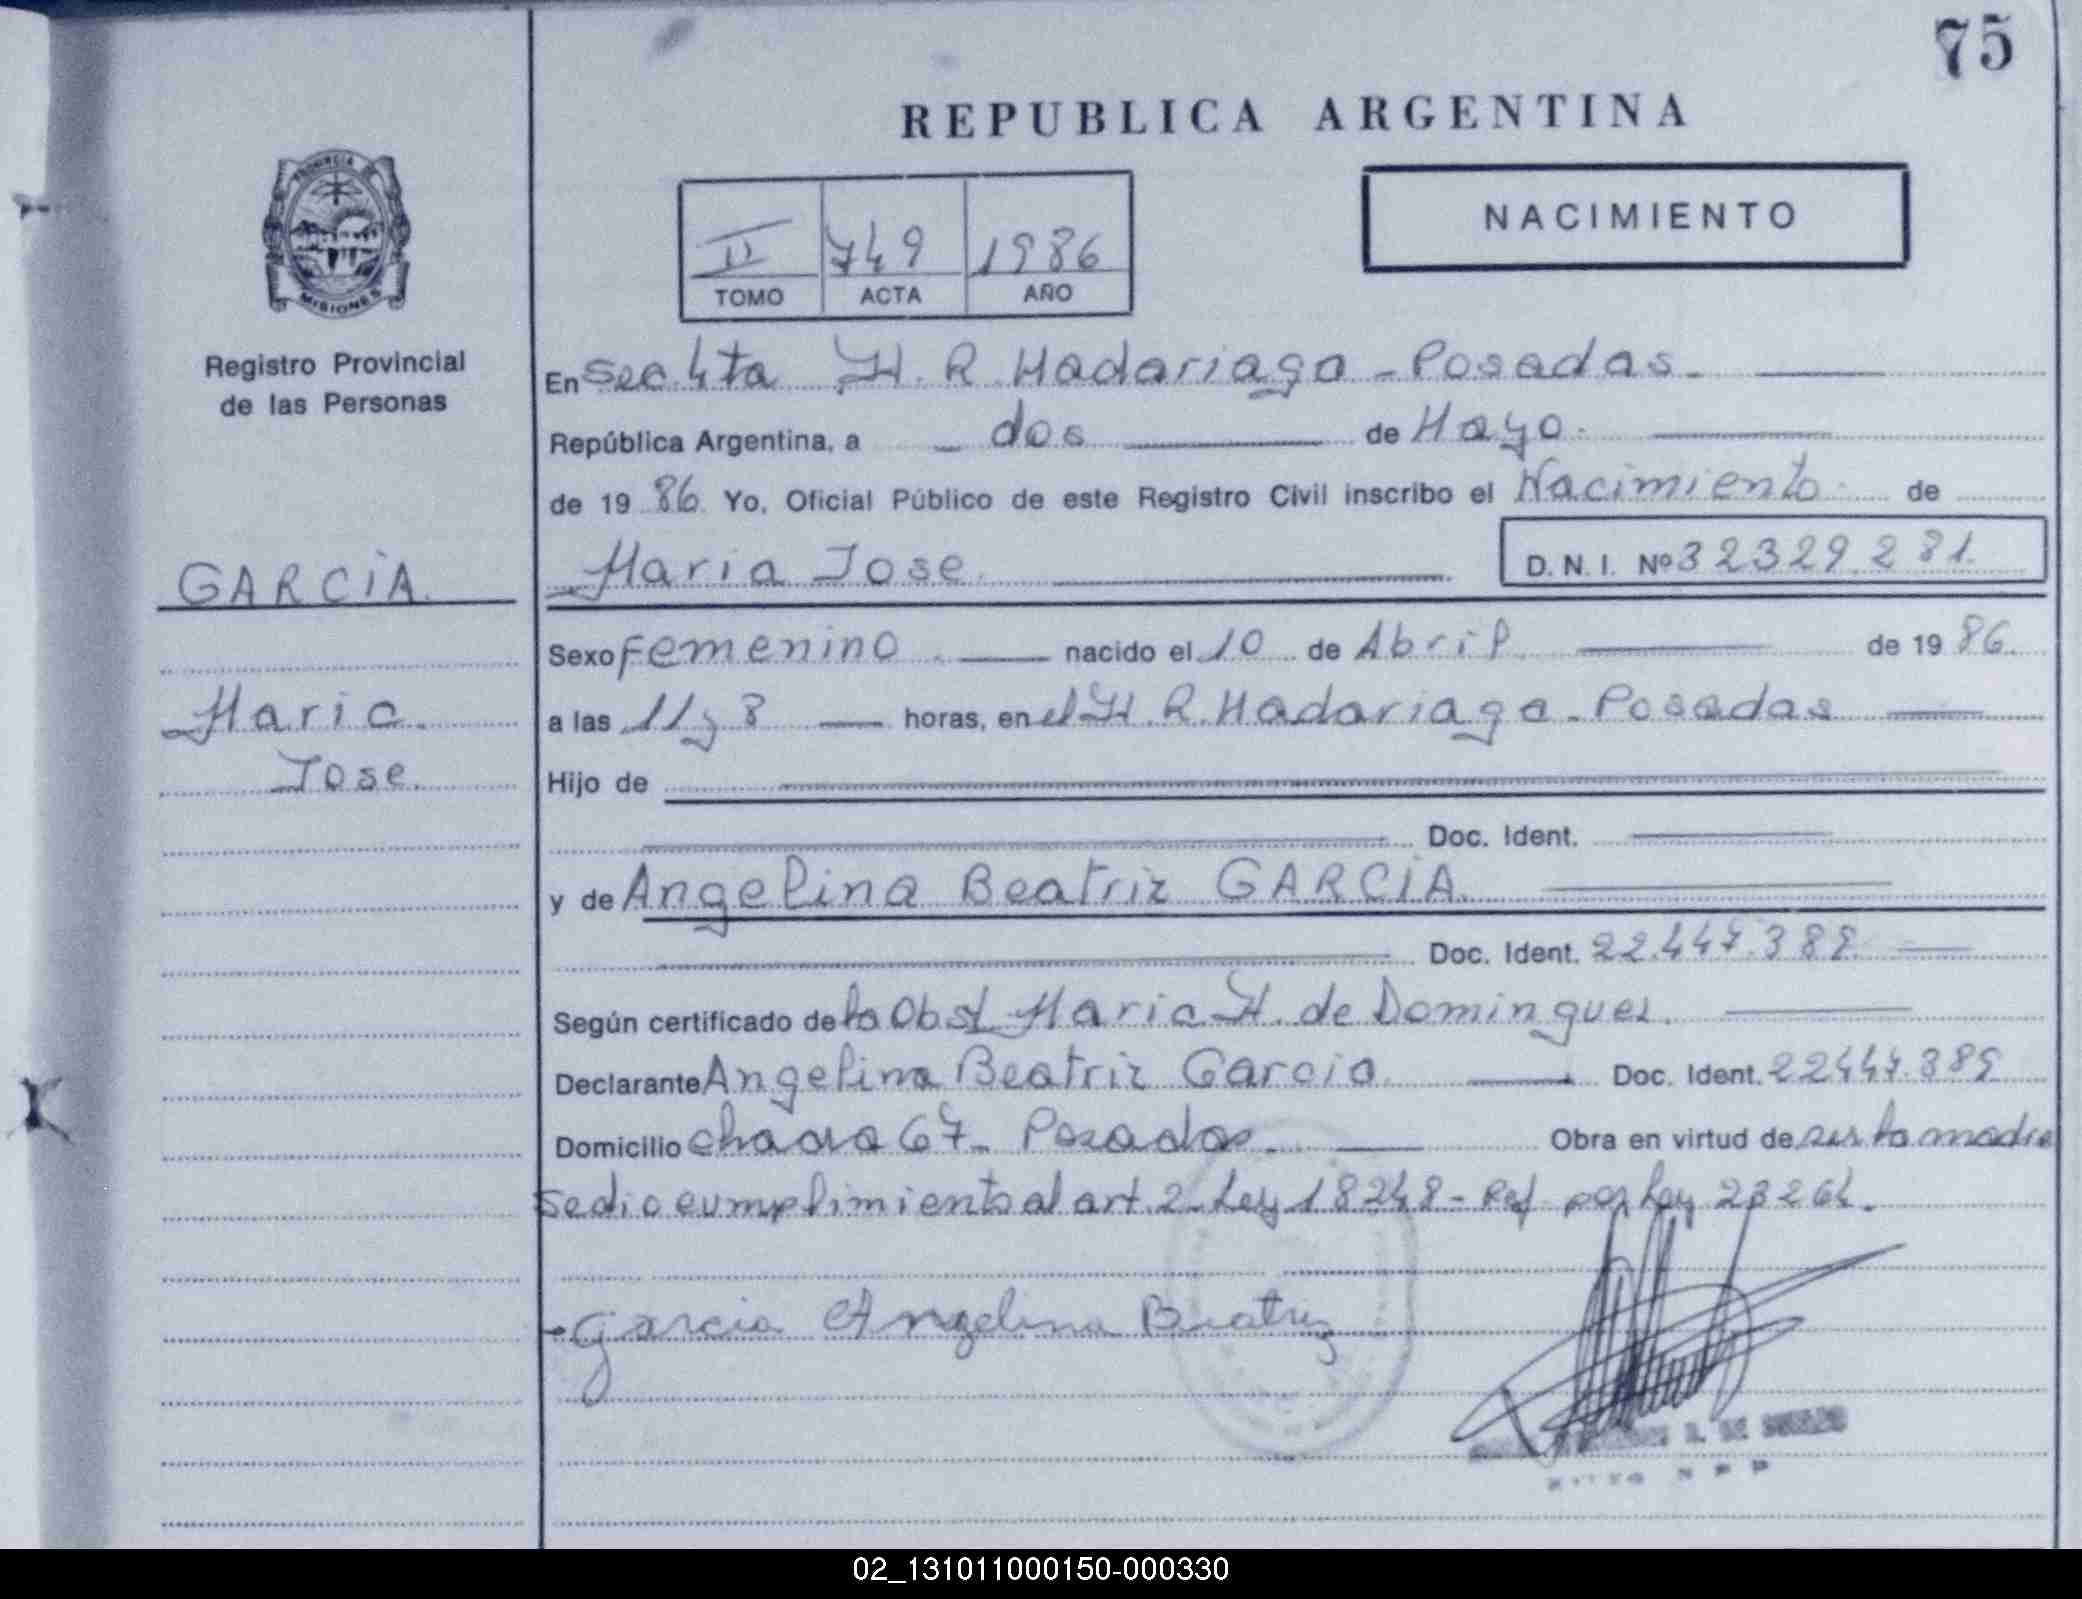 75
REPUBLICA ARGENTINA
PROVINCIA DE
MISIONES
Registro Provincial
de las Personas
II 749 1986
TOMO ACTA AÑO
NACIMIENTO
En Sec. 4ta H. R. Madariaga - Posadas.
República Argentina, a dos de Mayo.
de 19 86. Yo, Oficial Público de este Registro Civil inscribo el Nacimiento de
GARCIA.
Maria Jose D. N. I. Nº 32329.281.
Sexo Femenino nacido el 10 de Abril de 19 86.
Maria
Jose.
a las 11 y 8 horas, en el H. R. Madariaga - Posadas
Hijo de
Doc. Ident.
y de Angelina Beatriz GARCIA.
Doc. Ident. 22.447.389.
Según certificado de la Obst Maria H. de Dominguez.
Declarante Angelina Beatriz Garcia Doc. Ident. 22447.389
Domicilio chacra 67 - Posadas. Obra en virtud de ser la madre
se dio cumplimiento al art. 2 - Ley 18248 - Ref. por Ley 23264.
Garcia Angelina Beatriz
02_131011000150-000330